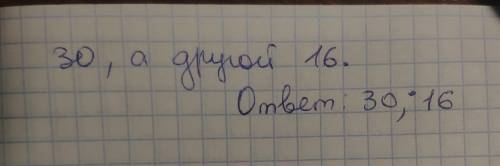 30, а другой 16.
Ответ: 30, 16